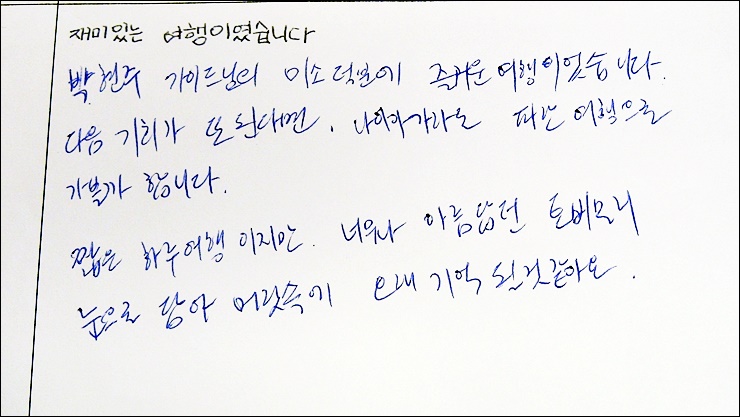 재미있는 여행이였습니다
박현주 가이드님의 미소 덕분에 즐거운 여행이었습니다.
다음 기회가 또 된다면, 나이아가라로 파란 여행으로
가볼가 합니다.
짧은 하루여행 이지만. 너무나 아름답던 토버모리
눈으로 담아 머릿속에 오래 기억 될것같아요.